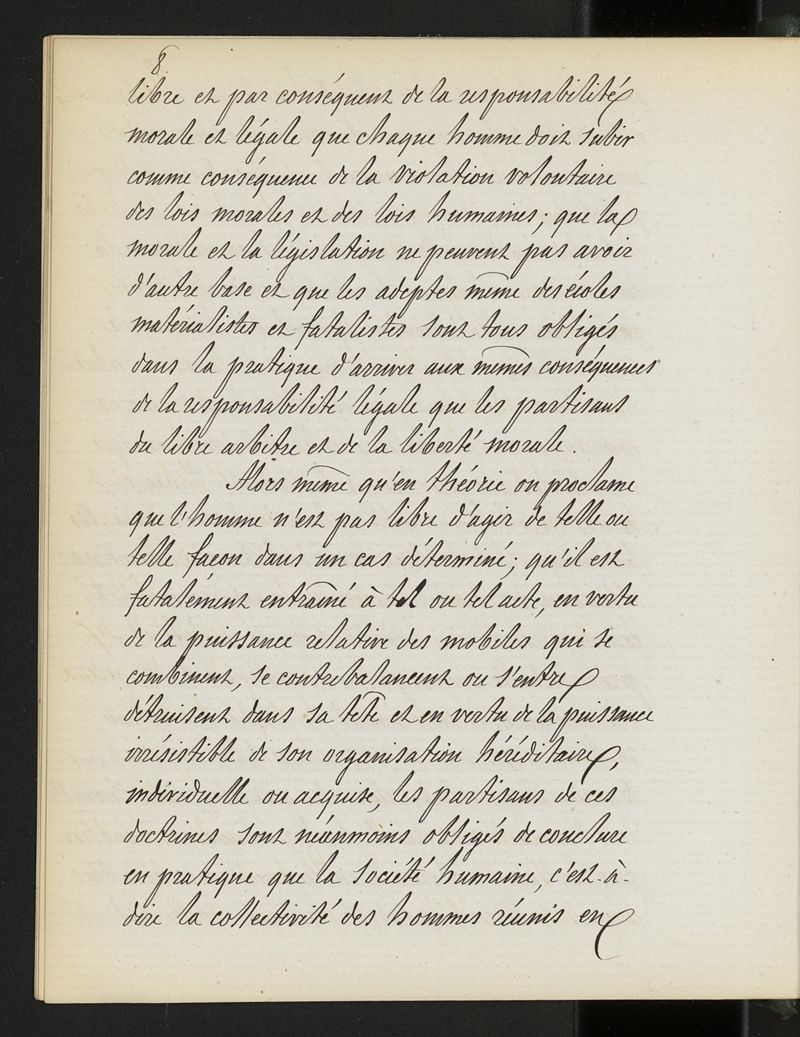 8
libre et par conséquent de la responsabilité
morale et légale que chaque homme doit subir
comme conséquence de la violation volontaire
des lois morales et des lois humaines; que la
morale et la législation ne peuvent pas avoir
d'autre base et que les adeptes même des écoles
matérialistes et fatalistes sont tous obligés
dans la pratique d'arriver aux mêmes conséquences
de la responsabilité légale que les partisans
du libre arbitre et de la liberté morale.
Alors même qu'en théorie on proclame
que l'homme n'est pas libre d'agir de telle ou
telle façon dans un cas déterminé; qu'il est
fatalement entraîné à tel ou tel acte, en vertu
de la puissance relative des mobiles qui se
combinent, se contrebalancent ou s'entre
détruisent dans sa tête et en vertu de la puissance
irrésistible de son organisation héréditaire,
individuelle ou acquise, les partisans de ces
doctrines sont néanmoins obligés de conclure
en pratique que la société humaine, c'est-à-
dire la collectivité des hommes réunis en